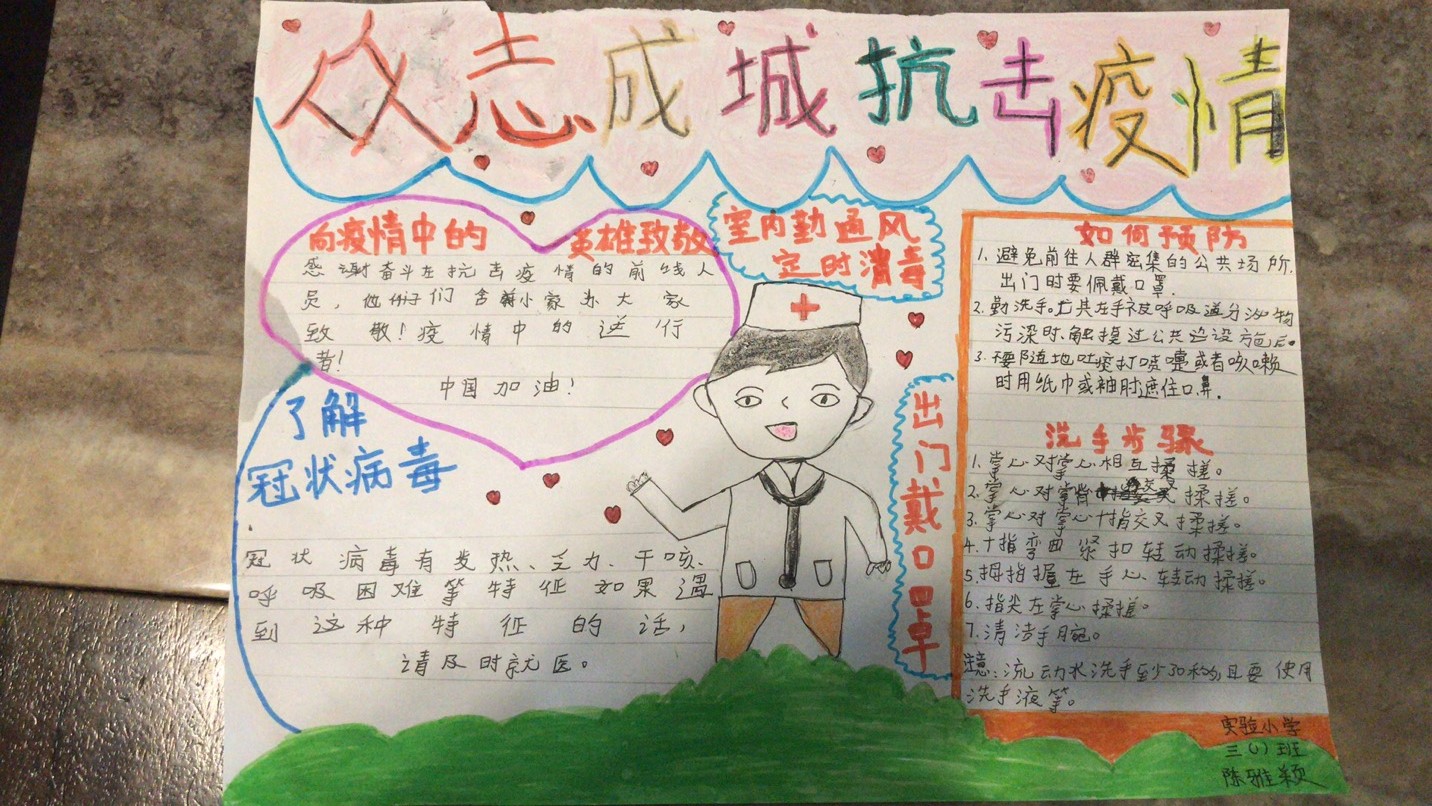 众志成城抗击疫情
向疫情中的 英雄致敬
感谢奋斗在抗击疫情的前线人
员，他们舍小家为大家
致敬！疫情中的逆行
者！
中国加油！
室内勤通风
定时消毒
出门戴口罩
了解
冠状病毒
冠状病毒有发热、乏力、干咳、
呼吸困难等特征如果遇
到这种特征的话，
请及时就医。
如何预防
1. 避免前往人群密集的公共场所，
出门时要佩戴口罩.
2. 勤洗手。尤其在手被呼吸道分泌物
污染时、触摸过公共设施后。
3. 不要随地吐痰打喷嚏或者咳嗽
时用纸巾或袖肘遮住口鼻.
洗手步骤
1. 掌心对掌心相互揉搓。
2. 掌心对掌背交叉揉搓。
3. 掌心对掌心十指交叉揉搓。
4. 十指弯曲紧扣转动揉搓。
5. 拇指握在手心、转动揉搓。
6. 指尖在掌心揉搓。
7. 清洁手腕。
注意：流动水洗手至少30秒且要使用
洗手液等。
实验小学
三（1）班
陈雅颖